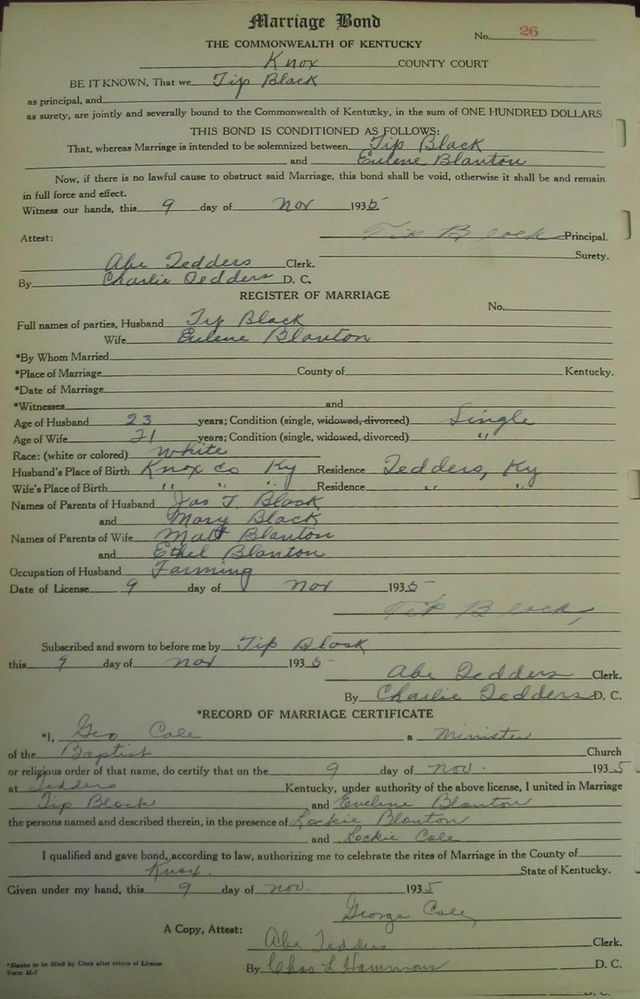 Marriage Bond
No. 26
THE COMMONWEALTH OF KENTUCKY
Knox COUNTY COURT
BE IT KNOWN, That we Tip Black
as principal, and
as surety, are jointly and severally bound to the Commonwealth of Kentucky, in the sum of ONE HUNDRED DOLLARS
THIS BOND IS CONDITIONED AS FOLLOWS:
That, whereas Marriage is intended to be solemnized between Tip Black
and Eulene Blanton
Now, if there is no lawful cause to obstruct said Marriage, this bond shall be void, otherwise it shall be and remain
in full force and effect.
Witness our hands, this 9 day of Nov 1935
Attest: Tip Black Principal.
Surety.
Abe Tedders Clerk.
By Charlie Tedders D. C.
REGISTER OF MARRIAGE
No.
Full names of parties, Husband Tip Black
Wife Eulene Blanton
*By Whom Married
*Place of Marriage County of Kentucky.
*Date of Marriage
*Witnesses and
Age of Husband 23 years; Condition (single, widowed, divorced) Single
Age of Wife 21 years; Condition (single, widowed, divorced) "
Race: (white or colored) White
Husband's Place of Birth Knox co Ky Residence Tedders, Ky
Wife's Place of Birth " " " Residence " "
Names of Parents of Husband Jas T. Black
and Mary Black
Names of Parents of Wife Matt Blanton
and Ethel Blanton
Occupation of Husband Farming
Date of License 9 day of Nov 1935
Tip Black
Subscribed and sworn to before me by Tip Black
this 9 day of Nov 1935
Abe Tedders Clerk.
By Charlie Tedders D. C.
*RECORD OF MARRIAGE CERTIFICATE
*I, Geo Cole a Minister
of the Baptist Church
or religious order of that name, do certify that on the 9 day of Nov. 1935
at Tedders Kentucky, under authority of the above license, I united in Marriage
Tip Black and Eveline Blanton
the persons named and described therein, in the presence of Lockie Blanton
and Lockie Cole
I qualified and gave bond, according to law, authorizing me to celebrate the rites of Marriage in the County of
Knox. State of Kentucky.
Given under my hand, this 9 day of Nov. 1935
George Cole
A Copy, Attest:
Abe Tedders Clerk.
*Blanks to be filled by Clerk after return of License
Form M-7
By Chas L Hammons D. C.
D. C.